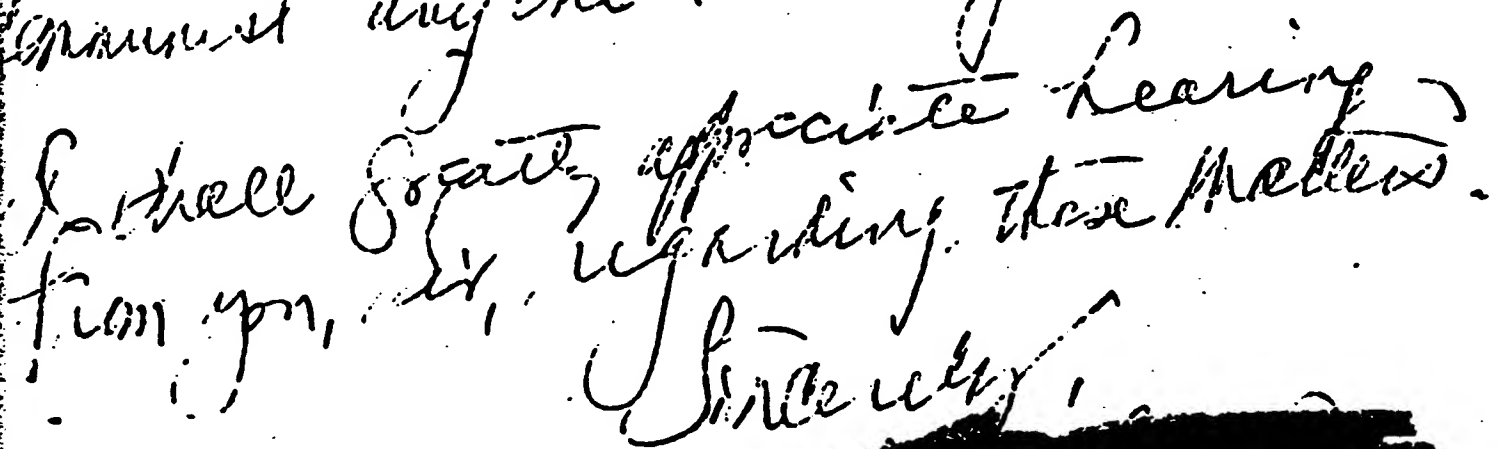 against anyone
I shall greatly appreciate hearing
from you, sir, regarding these matters.
Sincerely,